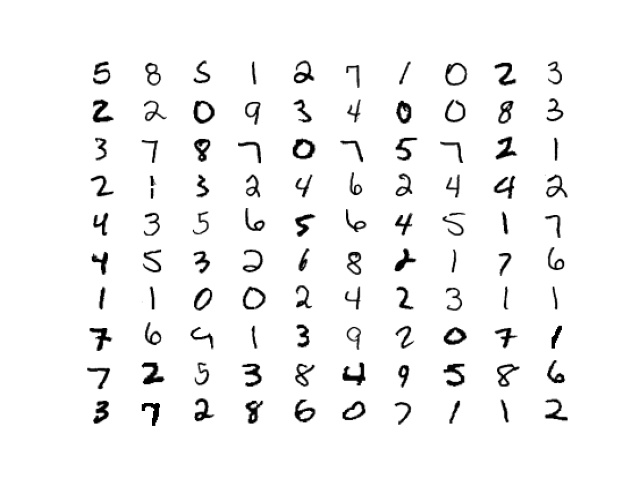 5 8 5 1 2 7 1 0 2 3
2 2 0 9 3 4 0 0 8 3
3 7 8 7 0 7 5 7 2 1
2 1 3 2 4 6 2 4 4 2
4 3 5 6 5 6 4 5 1 7
4 5 3 2 6 8 2 1 7 6
1 1 0 0 2 4 2 3 1 1
7 6 9 1 3 9 2 0 7 1
7 2 5 3 8 4 9 5 8 6
3 7 2 8 6 0 7 1 1 2